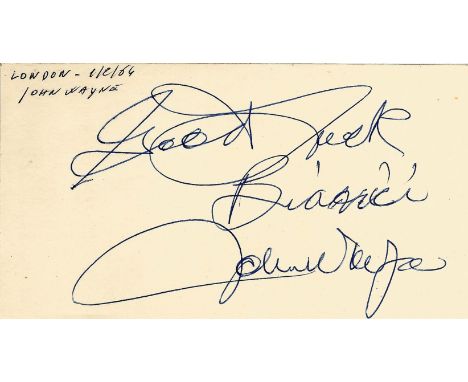 LONDON - 2/2/64
JOHN WAYNE
Good Luck
Bianchi
John Wayne